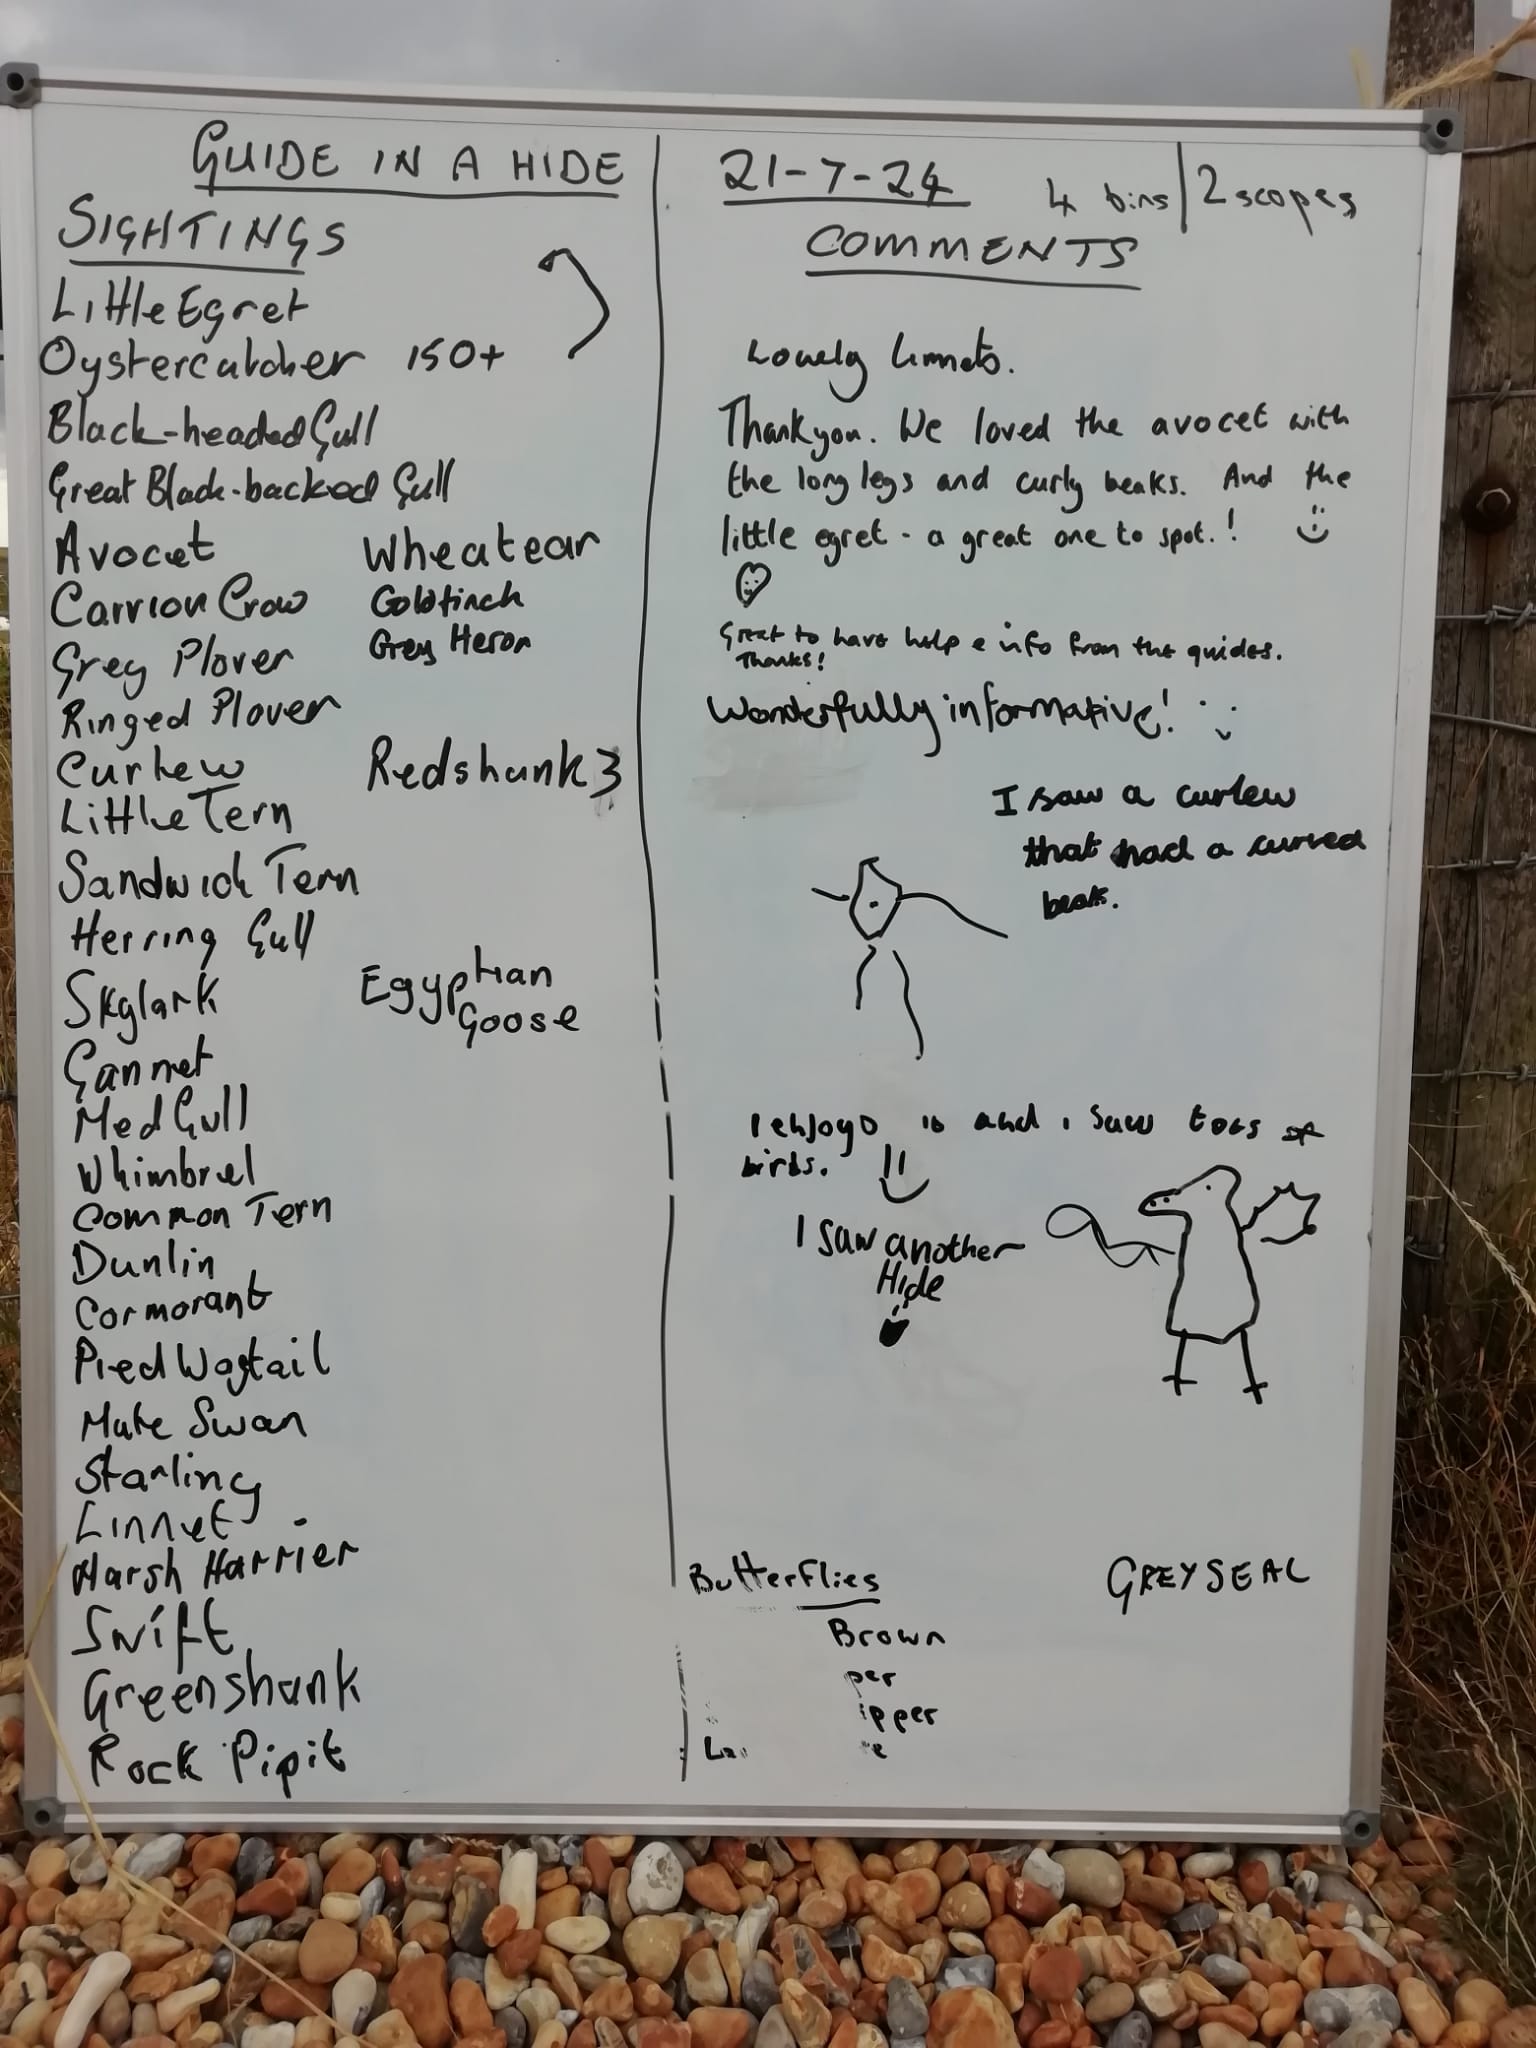 GUIDE IN A HIDE
21-7-24
4 bins | 2 scopes
SIGHTINGS
Little Egret
Oystercatcher 150+
Black-headed Gull
Great Black-backed Gull
Avocet
Wheatear
Carrion Crow
Goldfinch
Grey Plover
Grey Heron
Ringed Plover
Curlew
Redshank 3
Little Tern
Sandwich Tern
Herring Gull
Skylark
Egyptian
Goose
Gannet
Med Gull
Whimbrel
Common Tern
Dunlin
Cormorant
Pied Wagtail
Mute Swan
Starling
Linnet
Marsh Harrier
Swift
Greenshank
Rock Pipit
COMMENTS
Lovely linnets.
Thankyou. We loved the avocet with
the long legs and curly beaks. And the
little egret - a great one to spot.!
Great to have help & info from the guides.
Thanks!
Wonderfully informative!
I saw a curlew
that had a curved
beak.
I enjoyd it and i saw tots of
birds.
I saw another
Hide
Butterflies
Brown
per
ipper
GREY SEAL